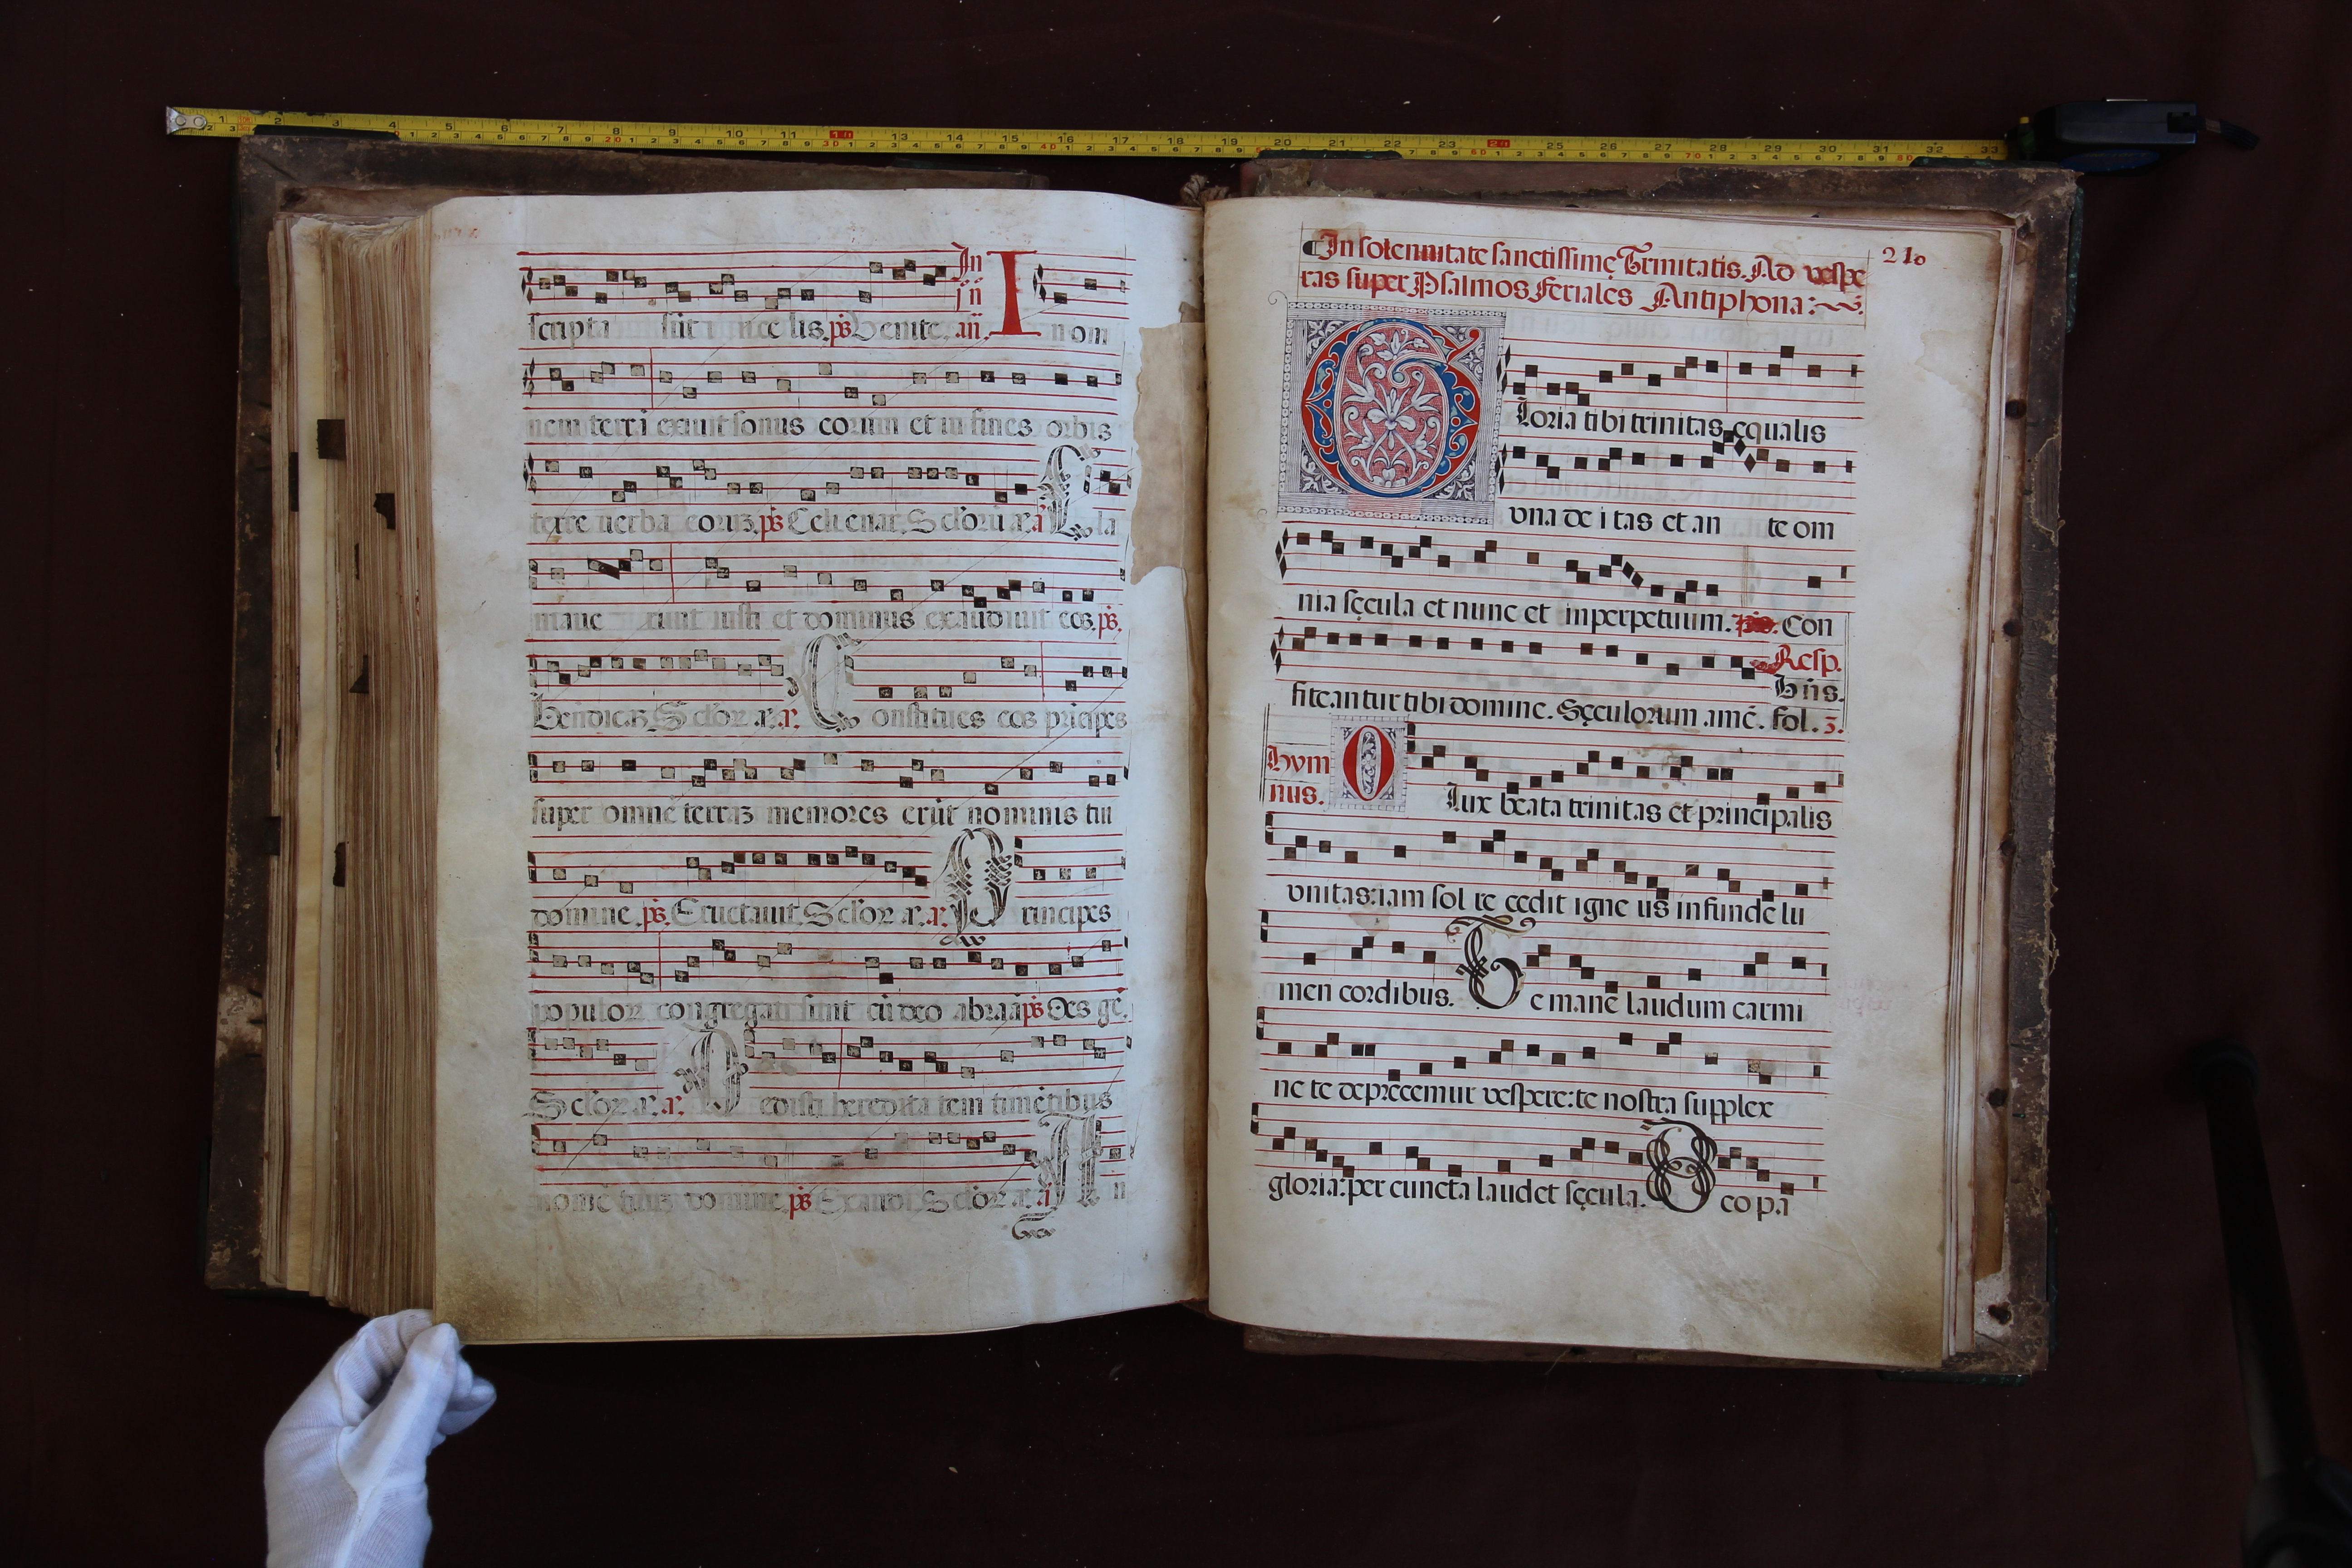 In
in
scripta sūt in ce lis. ps Venite. añ. I n om
nem terrā exiuit sonus eorum et in fines orbis
terre uerba eorū. ps Celi enar. Seclorū a. a. C la
mauerunt iusti et dominus exaudiuit eos. ps.
Bendicā. Seclor a. a. C onstitues eos prīcipes
super omnē terrā memores erūt nominis tui
domine. ps. Eructauit. Seclor a. a. P rincipes
populor congregati sunt cū deo abraā ps Oēs gē.
Seclor a. a. D edisti hereditatem timētibus
nomē tuū domine ps Exaudi Seclor a. a. A n
In solennitate sanctissimę Trinitatis. Ad vespe
ras super Psalmos feriales Antiphona:
210
G loria tibi trinitas ęqualis
vna de i tas et an te om
nia sęcula et nunc et inperpetuum. ps. Con
fiteantur tibi domine. Sęculorum amē.
Resp.
hūs.
fol. 3.
Hym
nus.
O lux beata trinitas et principalis
vnitas: iam sol re cedit igne us infunde lu
men cordibus. T e mane laudum carmi
ne te deprecemur vespere: te nostra supplex
gloria: per cuncta laudet sęcula. D eo pa